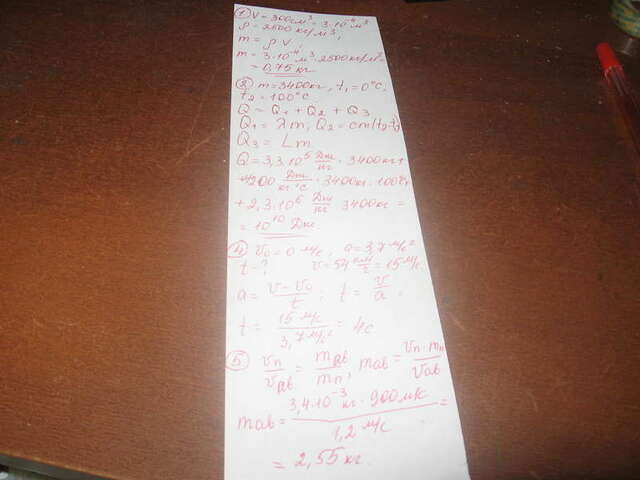 ① V = 300 см³ = 3·10⁻⁴ м³
ρ = 2500 кг/м³,
m = ρV,
m = 3·10⁻⁴ м³·2500 кг/м³ =
= 0,75 кг
② m = 3400 кг, t₁ = 0°C,
t₂ = 100°C
Q = Q₁ + Q₂ + Q₃
Q₁ = λm, Q₂ = cm(t₂-t₁)
Q₃ = Lm
Q = 3,3·10⁵ Дж/кг · 3400 кг +
+4200 Дж/кг·°C · 3400 кг · 100°C
+ 2,3·10⁶ Дж/кг · 3400 кг =
= 10¹⁰ Дж
④ v₀ = 0 м/с, a = 3,7 м/с²
t - ? v = 54 км/ч = 15 м/с.
a = (v - v₀)/t ; t = v/a.
t = 15 м/с / 3,7 м/с² = 4с
⑤ vп/vав = mав/mп, mав = vп·mп/vав
mав = 3,4·10⁻³ кг · 900 м/с / 1,2 м/с =
= 2,55 кг.